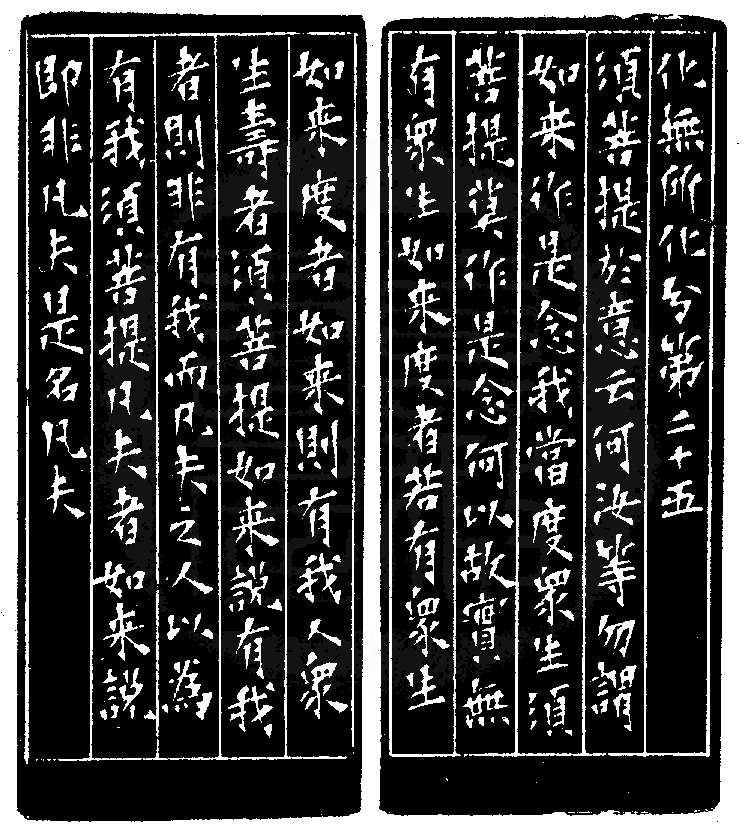 化無所化分第二十五
須菩提於意云何汝等勿謂
如来作是念我當度衆生須
菩提莫作是念何以故實無
有衆生如来度者若有衆生
如来度者如来則有我人衆
生壽者須菩提如来說有我
者則非有我而凡夫之人以為
有我須菩提凡夫者如来說
即非凡夫是名凡夫